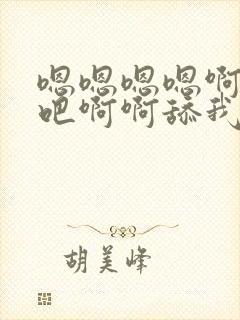 嗯嗯嗯嗯啊
吧啊啊舔我
胡美峰